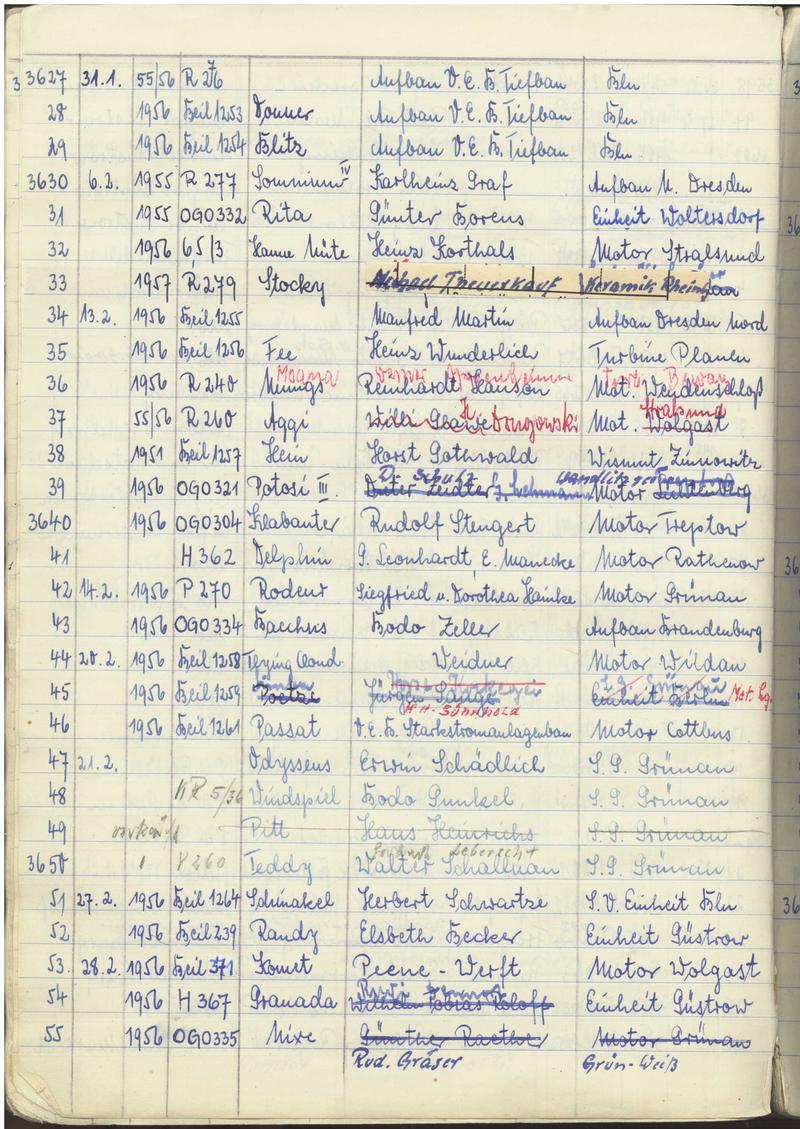 3 3627 31.1. 55/56 R 276 Aufbau V.E.B. Tiefbau Bln
28 1956 Beil 1253 Donner Aufbau V.E.B. Tiefbau Bln
29 1956 Beil 1254 Blitz Aufbau V.E.B. Tiefbau Bln
3630 6.2. 1955 R 277 IV Karlheinz Graf Aufbau M. Dresden
31 1955 OGO332 Rita Günter Borens Einheit Woltersdorf
32 1956 65/3 Hanne Nüte Heinz Korthals Motor Stralsund
33 1957 R 279 Stocky Michael Treuerkauf Keramik
34 13.2. 1956 Beil 1255 Manfred Martin Aufbau Dresden Nord
35 1956 Beil 1256 Fee Heinz Wunderlich Turbine Plauen
Moana
36 1956 R 240 Reinhardt Hanson Mot. Wendenschloß
Stralsund
37 55/56 R 260 Aggi Willi Mot. Wolgast
38 1951 Beil 1257 Hein Horst Gothwald Wismut Zinnowitz
D. Schulz
39 1956 OGO321 Potosi III. Dieter Zeidler Lehmann Motor Lichtenberg
3640 1956 OGO304 Klabauter Rudolf Stengert Motor Treptow
41 H 362 Delphin G. Leonhardt, E. Manecke Motor Rathenow
42 14.2. 1956 P 270 Rodeur Siegfried u. Dorothea Hainke Motor Grünau
43 1956 OGO334 Bacchus Bodo Zeller Aufbau Brandenburg
44 20.2. 1956 Beil 1258 Flying Cloud Weidner Motor Wildau
45 1956 Beil 1259 Jürgen Lange Einheit Berlin Mot. Lg.
H.H. Sünnhold
46 1956 Beil 1261 Passat V.E.B. Starkstromanlagenbau Motor Cottbus
47 21.2. Odysseus Erwin Schädlich S.G. Grünau
48 KR 5/36 Windspiel Bodo Gunkel S.G. Grünau
49 verkauft Pitt Hans Heinrichs S.G. Grünau
3650 V 260 Teddy Walter Schallnau S.G. Grünau
51 27.2. 1956 Beil 1264 Schinakel Herbert Schwartze S.V. Einheit Bln
52 1956 Beil 239 Randy Elsbeth Becker Einheit Güstrow
53. 28.2. 1956 Beil 371 Komet Peene - Werft Motor Wolgast
54 1956 H 367 Granada Wilhelm Tobias Roloff Einheit Güstrow
55 1956 OGO335 Nixe Günther Raether Motor Grünau
Rud. Gräser Grün-Weiß